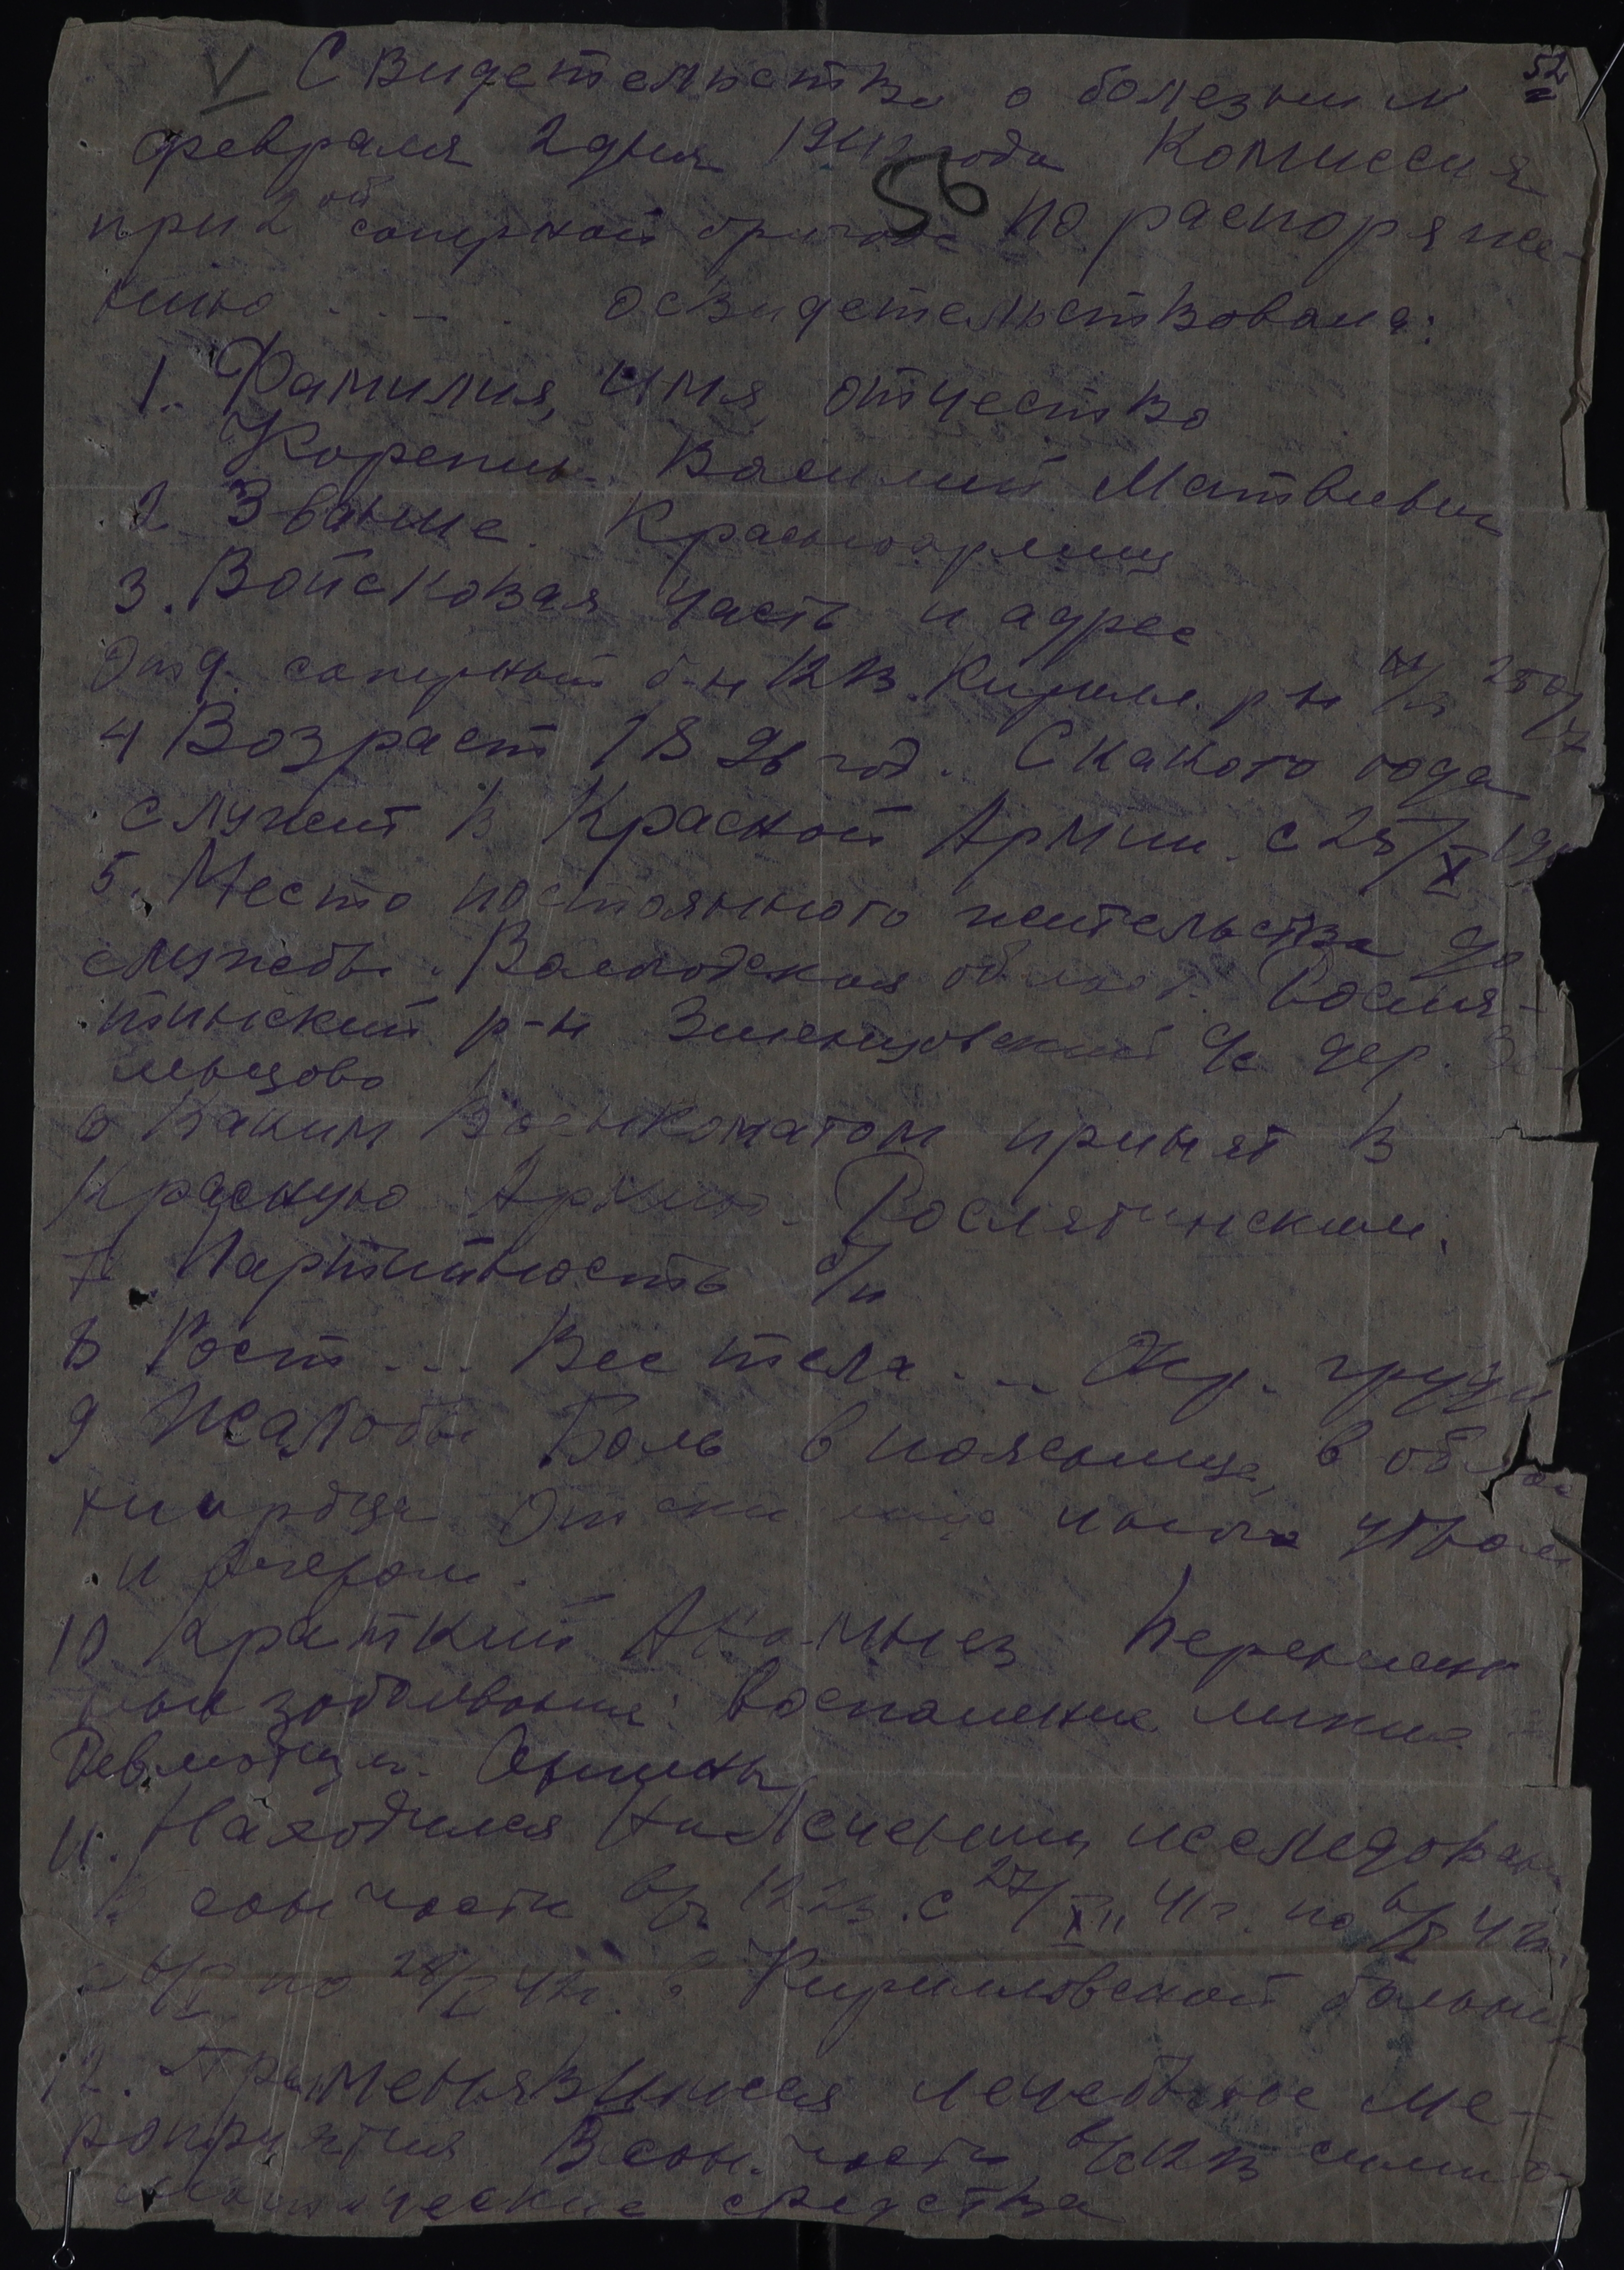 52
Свидетельство о болезни №
февраля 2 дня 1942 года Комиссия
56
при 2ой саперной бригаде по распоряже-
нию . . - . освидетельствована:
1. Фамилия, имя, отчество
Корепин. Василий Матвиевич
2 Звание. Красноармеец
3. Войсковая часть и адрес
Отд. саперный б-н 1213. Кирилл. р-н
4 Возраст 1896 год. С какого года
служит в Красной Армии. с 25/X 19
5. Место постоянного жительства до
службы. Вологодская област. Росля-
тинский р-н Зименцовский с/с дер.
льцово
6 Каким Военкоматом принят в
Красную Армию. Рослятинским.
7 Партийность б/п
8 Рост - - - Вес тела - - - Окр. груди
9 Жалобы Боль в пояснице, в обла
сердца Отеки лица утром
и вечером.
10 Краткий Анамнез Перенесен
ные заболевания: воспаление легких
Ревматизм.
11. Находился на лечении и исследован
в сан части в/ч с 27/XII 41г. по 6/I 42г.
с 6/I по 28/I 42г. в Кирилловской больни
12. Применявшиеся лечебные ме-
роприятия В сан. части в/ч симпто
матические средства